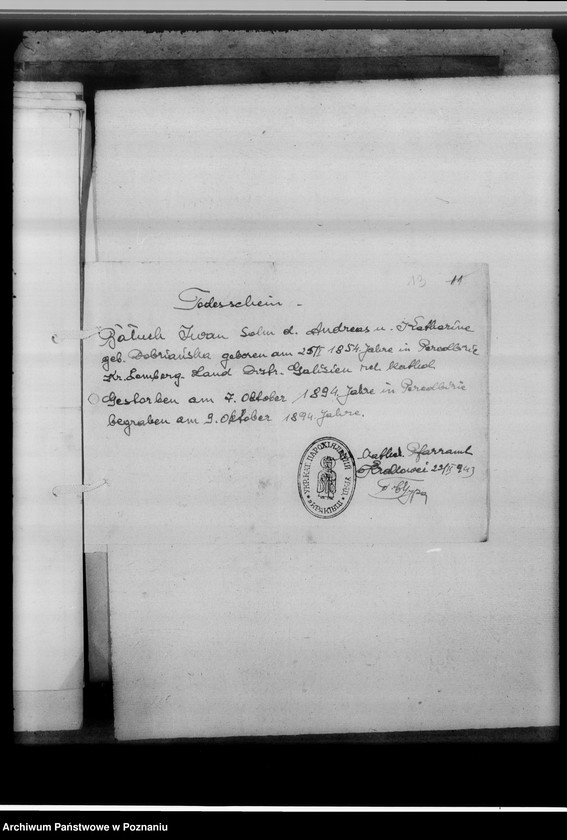 13 11
Todesschein -
Batuch Iwan Sohn d. Andreas u. Katharine
geb. Dobriańska geboren am 25/II 1854 Jahre in
Kr. Lemberg Land Distr. Galizien rel. kathol.
Gestorben am 7. Oktober 1894 Jahre in
begraben am 9. Oktober 1894 Jahre.
Pfarramt
УКР. ПАРОХІЯЛЬНИЙ УРЯД
Archiwum Państwowe w Poznaniu